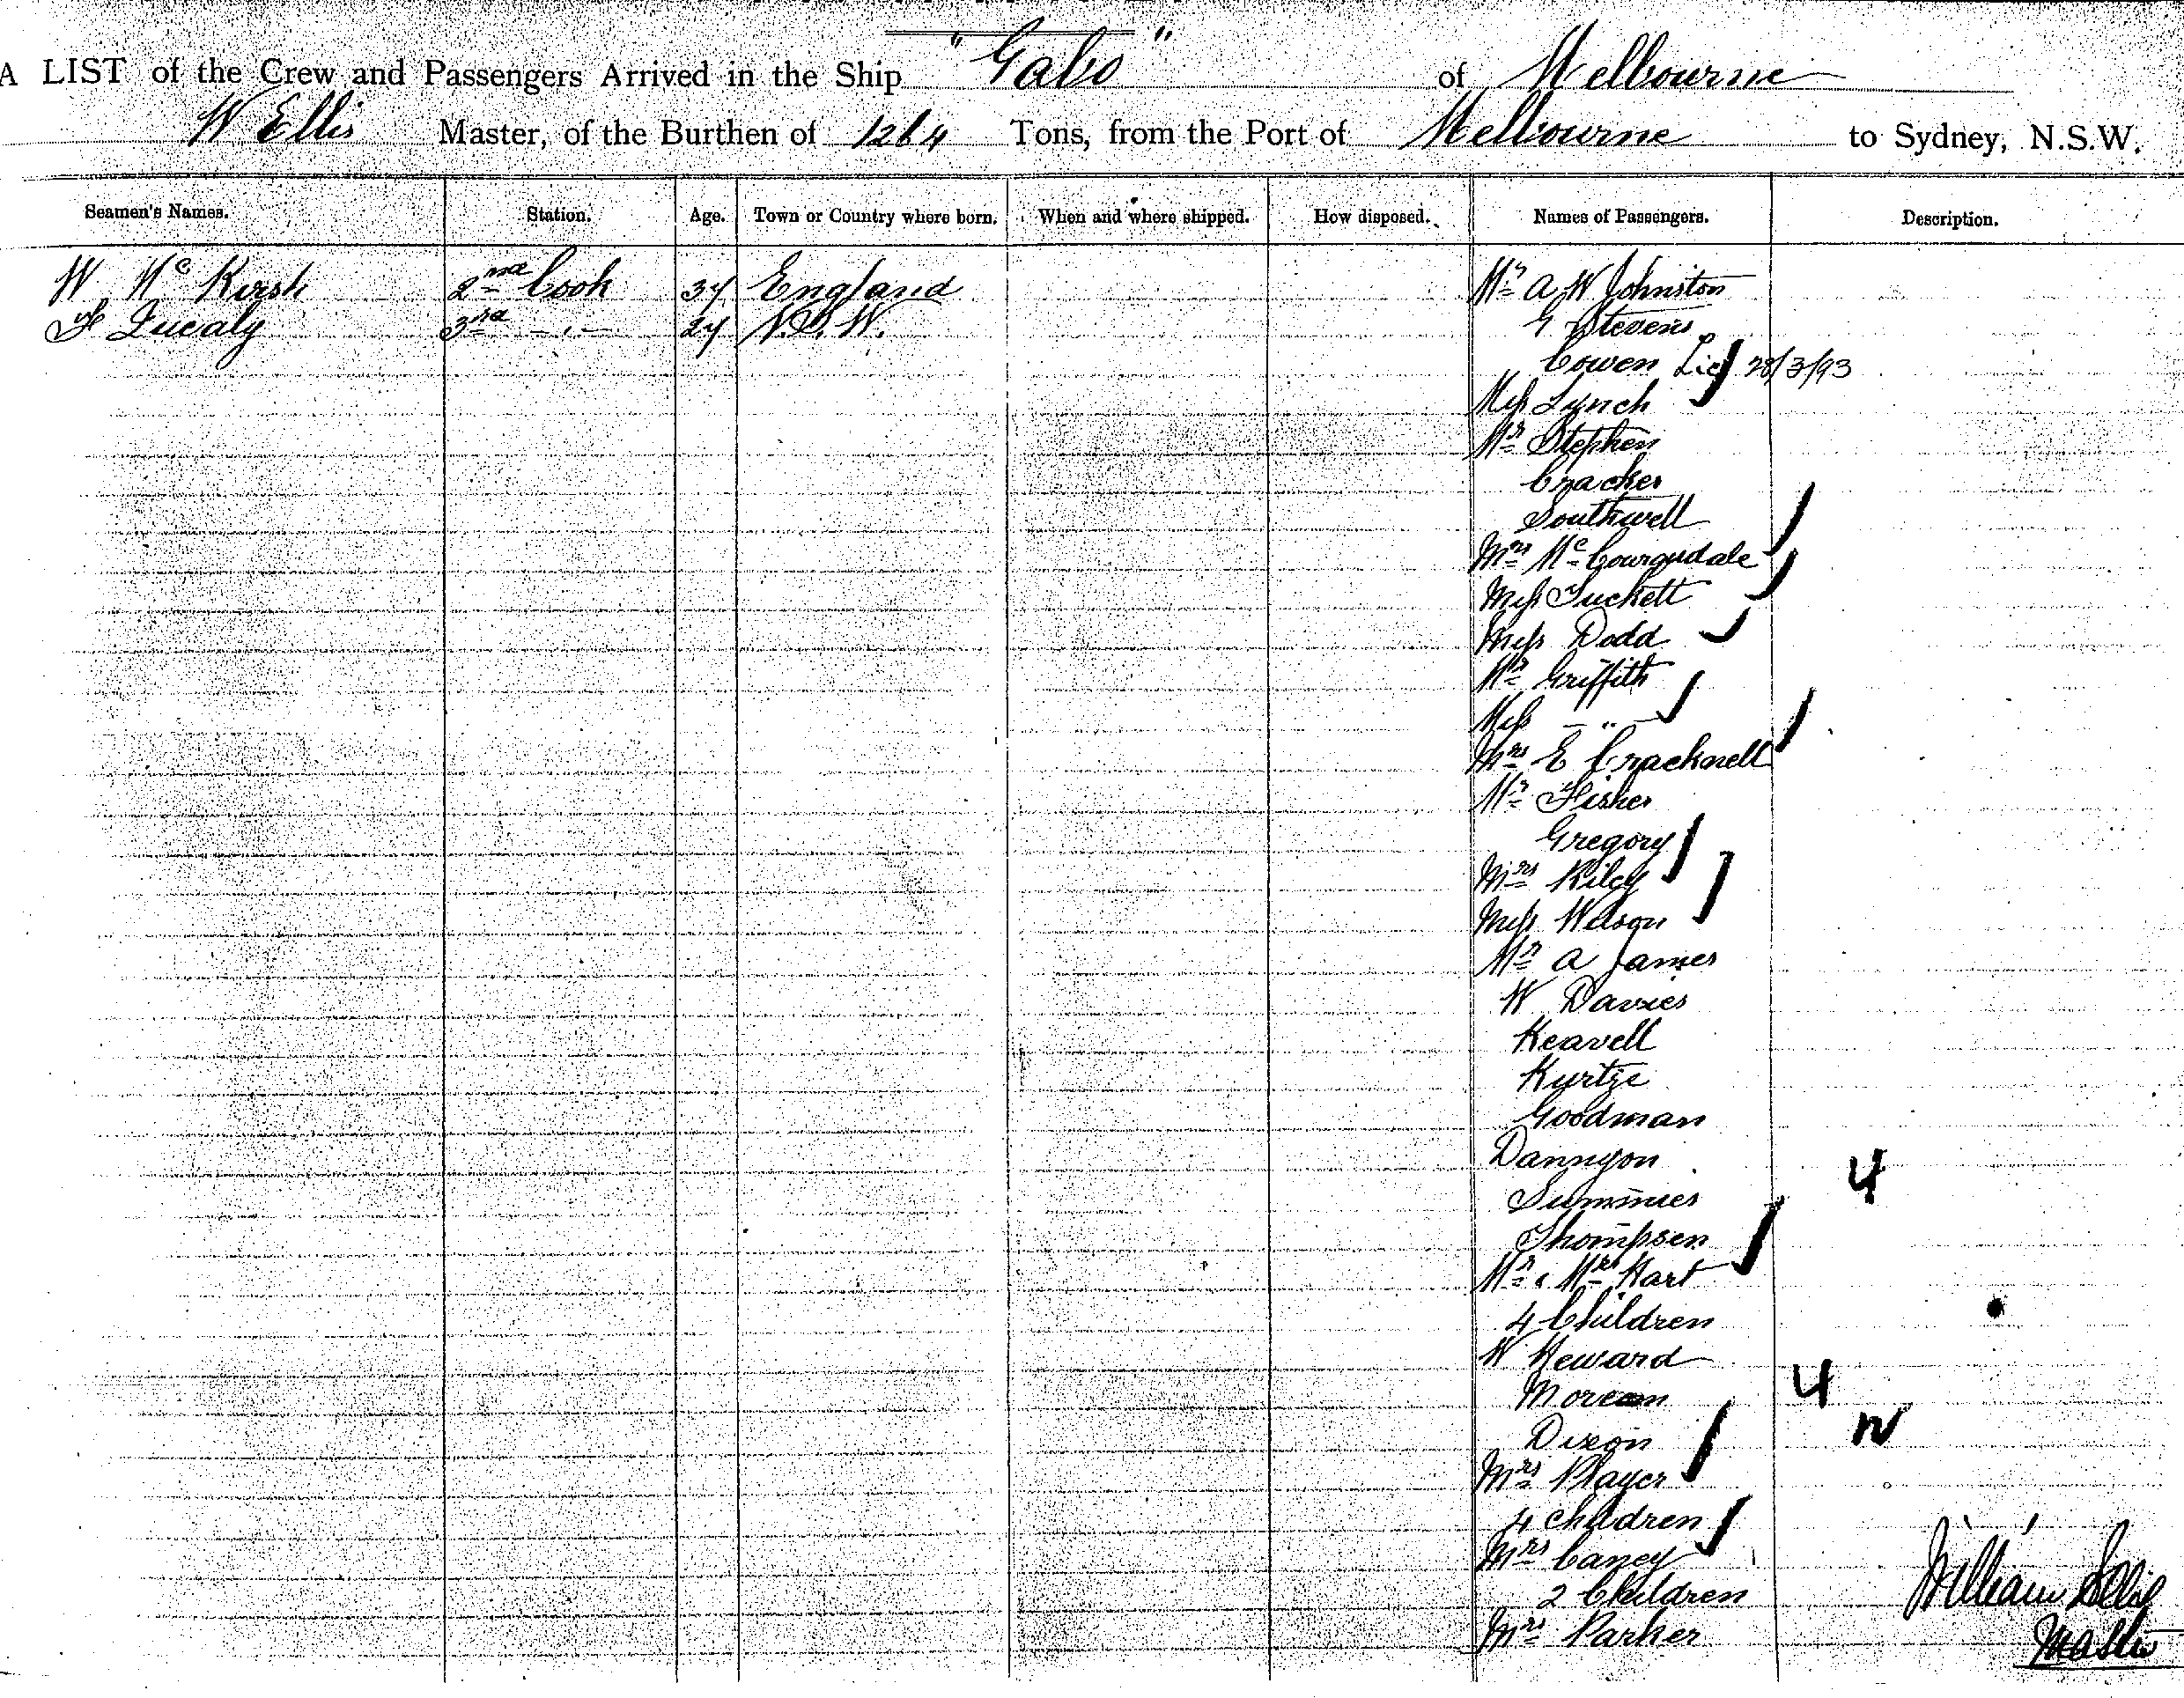 A LIST of the Crew and Passengers Arrived in the Ship "Gabo" of Melbourne
W Ellis Master, of the Burthen of 1264 Tons, from the Port of Melbourne to Sydney, N.S.W.
Seamen's Names. Station. Age. Town or Country where born. When and where shipped. How disposed. Names of Passengers. Description.
W Mc Kirsh 2nd Cook 34 England Mr A W Johnston
F 3rd - " - 24 N.S.W. G Stevens
Cowen Lie 28/3/93
Miss Lynch
Mr Stephen
Cracker
Southwell
Mrs Mc
Miss Tuckett
Miss Dodd
Mr Griffith
Miss - " -
Mrs E Cracknell
Mr Fisher
Gregory
Mrs Riley
Miss Wilson
Mr A James
W Davies
Keavell
Kurtze
Goodman
Dannyon
4
Summies
Thompsen
Mr & Mrs Hart
4 Children
W Heward
4
N
Dixon
Mrs Player
4 Children
Mrs Caney
2 Children
Mrs Parker
William Ellis
Master